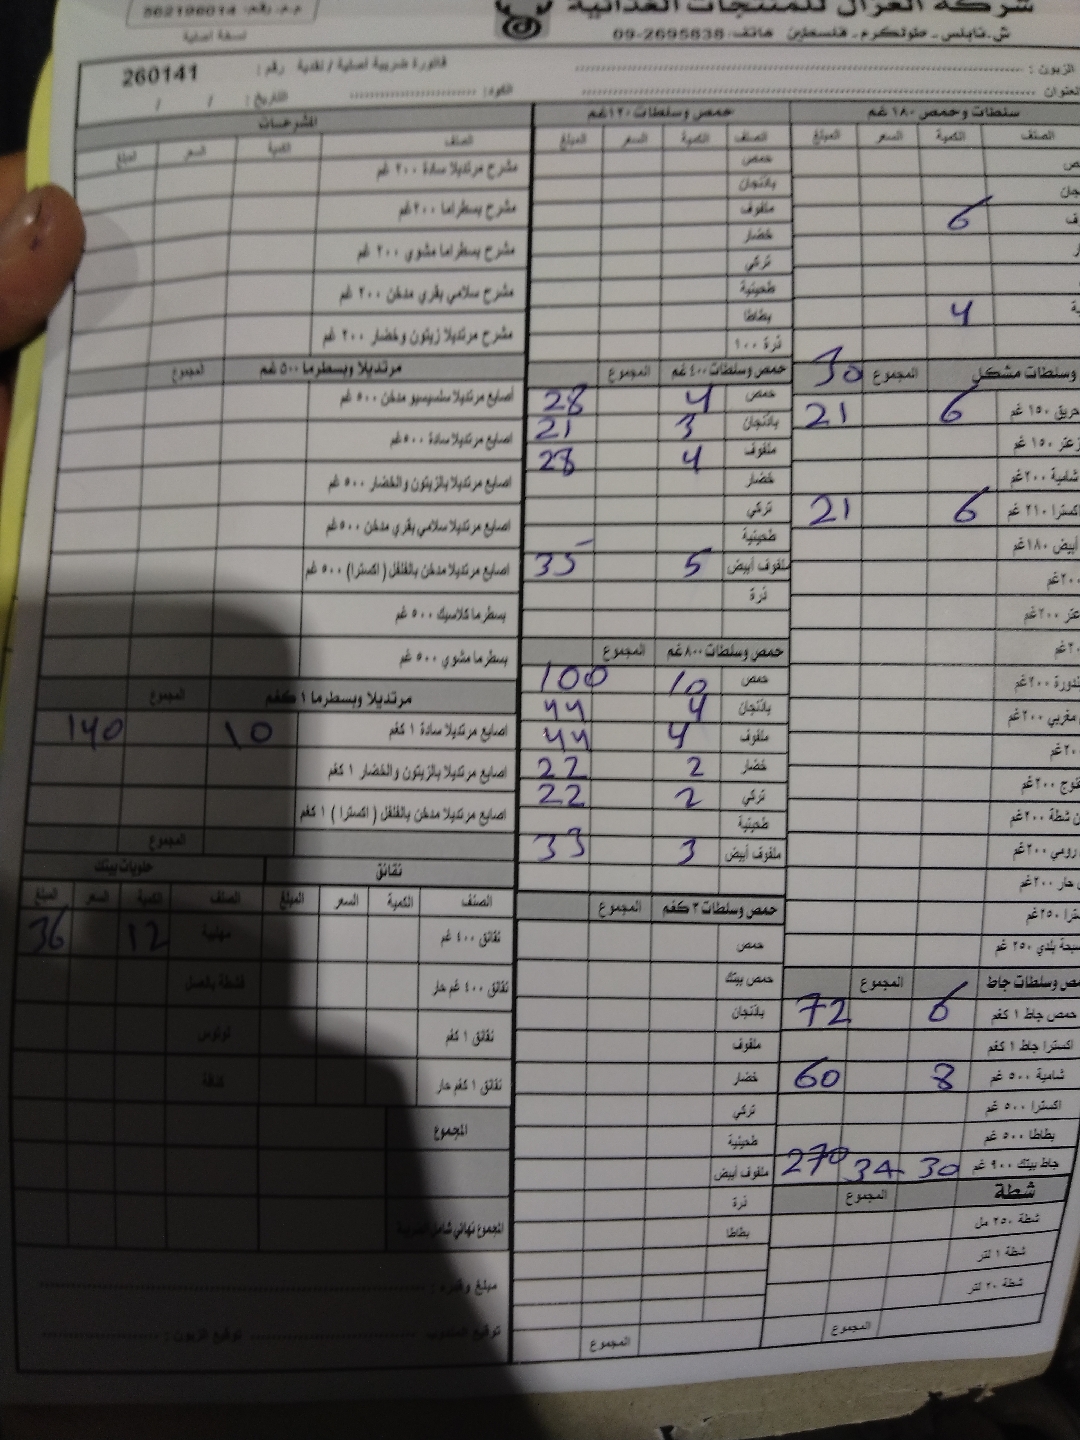 م.م. رقم: 562196014
نسخة اصلية
شركة الغزال للمنتجات الغذائية
ش.نابلس - طولكرم - فلسطين هاتف: 09-2695838
الزبون :
فاتورة ضريبية اصلية / نقدية رقم : 260141
العنوان
الكود:
التاريخ : / /
سلطات وحمص ١٨٠ غم
الصنف الكمية السعر المبلغ
6
4
وسلطات مشكل المجموع 30
حريق ١٥٠ غم 6 21
زعتر ١٥٠ غم
شامية ٢٠٠ غم
اكسترا ٢١٠ غم 6 21
أبيض ١٨٠ غم
٢٠٠ غم
عتر ٢٠٠ غم
٢٠٠ غم
ندورة ٢٠٠ غم
مغربي ٢٠٠ غم
٢٠٠ غم
٢٠٠ غم
ن شطة ٢٠٠ غم
رومي ٢٠٠ غم
حار ٢٠٠ غم
سترا ٢٥٠ غم
سبحة بلدي ٢٥٠ غم
مص وسلطات جاط المجموع
حمص جاط ١ كغم 6 72
اكسترا جاط ١ كغم
شامية ٥٠٠ غم 8 60
اكسترا ٥٠٠ غم
بطاطا ٥٠٠ غم
جاط بيتك ٩٠٠ غم 30 34 270
شطة المجموع
شطة ٢٥٠ مل
شطة ١ لتر
شطة ٢٠ لتر
المجموع
حمص وسلطات ١٢٠ غم
الصنف الكمية السعر المبلغ
حمص
باذنجان
ملفوف
خضار
تركي
طحينية
بطاطا
ذرة ١٠٠
حمص وسلطات ٤٠٠ غم المجموع
حمص 4 28
باذنجان 3 21
ملفوف 4 28
خضار
تركي
طحينية
ملفوف أبيض 5 35
ذرة
حمص وسلطات ٨٠٠ غم المجموع
حمص 10 100
باذنجان 4 44
ملفوف 4 44
خضار 2 22
تركي 2 22
طحينية
ملفوف أبيض 3 33
حمص وسلطات ٣ كغم المجموع
حمص
حمص بيتك
باذنجان
ملفوف
خضار
تركي
طحينية
ملفوف أبيض
ذرة
بطاطا
المجموع
المشرحات
الصنف الكمية السعر المبلغ
مشرح مرتديلا سادة ٢٠٠ غم
مشرح بسطراما ٢٠٠ غم
مشرح بسطراما مشوي ٢٠٠ غم
مشرح سلامي بقري مدخن ٢٠٠ غم
مشرح مرتديلا زيتون وخضار ٢٠٠ غم
مرتديلا وبسطرما ٥٠٠ غم المجموع
اصابع مرتديلا سلسيسيو مدخن ٥٠٠ غم
اصابع مرتديلا سادة ٥٠٠ غم
اصابع مرتديلا بالزيتون والخضار ٥٠٠ غم
اصابع مرتديلا سلامي بقري مدخن ٥٠٠ غم
اصابع مرتديلا مدخن بالفلفل ( اكسترا ) ٥٠٠ غم
بسطرما كلاسيك ٥٠٠ غم
بسطرما مشوي ٥٠٠ غم
مرتديلا وبسطرما ١ كغم المجموع
اصابع مرتديلا سادة ١ كغم 10 140
اصابع مرتديلا بالزيتون والخضار ١ كغم
اصابع مرتديلا مدخن بالفلفل ( اكسترا ) ١ كغم
المجموع
نقانق
الصنف الكمية السعر المبلغ
نقانق ٤٠٠ غم
نقانق ٤٠٠ غم حار
نقانق ١ كغم
نقانق ١ كغم حار
حلويات بيتك
الصنف الكمية السعر المبلغ
12 36
قشطة بالعسل
لوتوس
كنافة
المجموع
المجموع نهائي شامل الضريبة
مبلغ وقدره :
توقيع المندوب
توقيع الزبون :